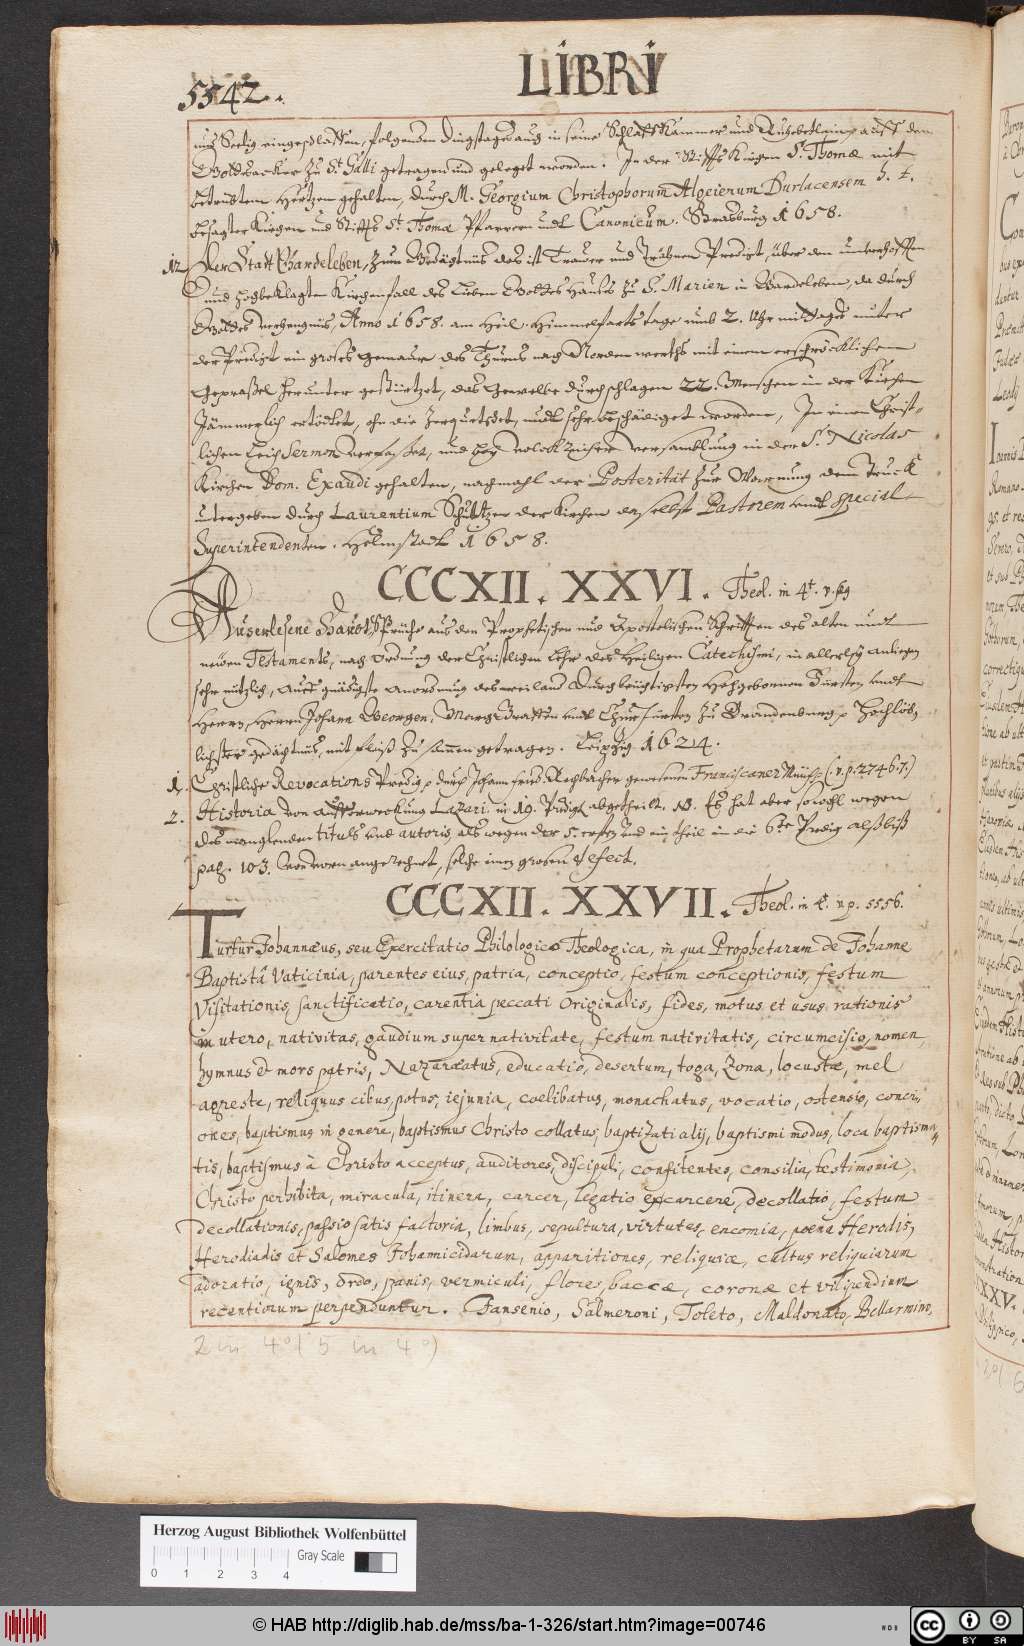 LIBRI
5542.
und Seelig eingeschlaffen, folgenden Dingstages auch in seine Schlaff Kammer und Ruhebetlein auff dem
Gottsacker zu St. Galli getragen und geleget worden. In der Stiffts Kirchen S. Thomæ mit
betrübtem Hertzen gehalten, durch M. Georgium Christophorum Algeierum Durlacensem h. t.
besagter Kirchen und Stiffts St. Thomæ Pfarrern undt Canonicum. Strasburg 1658.
12. Der Statt Gardeleben, zum Gedächtnüs das ist Trauer und Thränen Predigt, über den unverhofften
und hochbeklagten Kirchenfall des Lieben Gottes Hauses zu S. Marien in Gardeleben, da durch
Gottes verhengnis, Anno 1658. am Heil. Himmelfarts tage umb 2. Uhr mittages unter
der Predigt ein groses gemaur des Thurns nach Norden werths mit einem erschröcklichem
Geprassel herunter gestürtzet, das Gewelbe durchschlagen 22. Menschen in der Kirchen
Jämmerlich ertödtet, ohn die zerquetschet, undt sehr beschädiget worden, In einen Christ-
lichen Leich Sermon verfasset, und bey volckreicher versamblung in der S. Nicolas
Kirchen Dom. Exaudi gehalten, nachmahl der Posterität zur Warnung dem Truck
untergeben durch Laurentium Schültzen der Kirchen daselbst Pastorem undt special
Superintendenten. Helmstadt 1658.
CCCXII. XXVI. Theol. in 4t. v. pag
Auserlesene Haubt Sprüche aus den Prophetischen und Apostolischen Schrifften des alten undt
neüen Testaments, nach ordnung der Christlichen Lehr des Heiligen Catechismi, in allerley anliegen
sehr nützlich, Auff gnädigste anordnung des weiland Durchleüchtigsten Hochgebornen Fürsten undt
Herrn, Herrn Johann Georgen, Marg Graffen undt Churfürsten zu Brandenburg p Hochlöb-
lichster gedächtnüs, mit fleiß zu sammen getragen. Leipzig 1624.
1. Christliche Revocations Predig p durch Johann Frid. Rechbacher gewesenen Franciscaner Münch p (: v. p. 2746. 7.)
2. Historia von Aufferweckung Lazari. in 19. Predig. abgetheilt. NB. Es hat aber sowohl wegen
des manglenden tituls und autoris als wegen der 5. ersten und ein theil in die 6.te Predig alß biß
pag. 103. vornen angerechnet, solche einen grosen defect.
CCCXII. XXVII. Theol. in 4t. v p. 5556.
Turtur Johannæus, seu Exercitatio Philologico Theologica, in qua Prophetarum de Johanne
Baptistâ Vaticinia, parentes eius, patria, conceptio, festum conceptionis, festum
Visitationis, sanctificatio, carentia peccati Originalis, fides, motus et usus rationis
in utero, nativitas, gaudium super nativitate, festum nativitatis, circumcisio, nomen
hymnus et mors patris, Nazaræatus, educatio, desertum, toga, Zona, locustæ, mel
agreste, reliquus cibus, potus, iejunia, coelibatus, monachatus, vocatio, ostensio, conci,
ones, baptismus in genere, baptismus Christo collatus, baptizati alij, baptismi modus, loca baptisma,
tis, baptismus à Christo acceptus, auditores, discipuli, confitentes, consilia, testimonia,
Christo perhibita, miracula, itinera, carcer, legatio ex carcere, decollatio, festum
decollationis, passio satis factoria, limbus, sepultura, virtutes, encomia, poena Herodis,
Herodiadis et Salomes Johannicidarum, apparitiones, reliquiæ, cultus reliquiarum
adoratio, ignis, ordo, panis, vermiculi, flores, baccæ, coronæ et vilipendium
recentiorum perpenduntur. Jansenio, Salmeroni, Toleto, Maldonato, Bellarmino,
2 in 4° (5 in 4°)
Herzog August Bibliothek Wolfenbüttel
Gray Scale
0 1 2 3 4
© HAB http://diglib.hab.de/mss/ba-1-326/start.htm?image=00746
cc BY SA